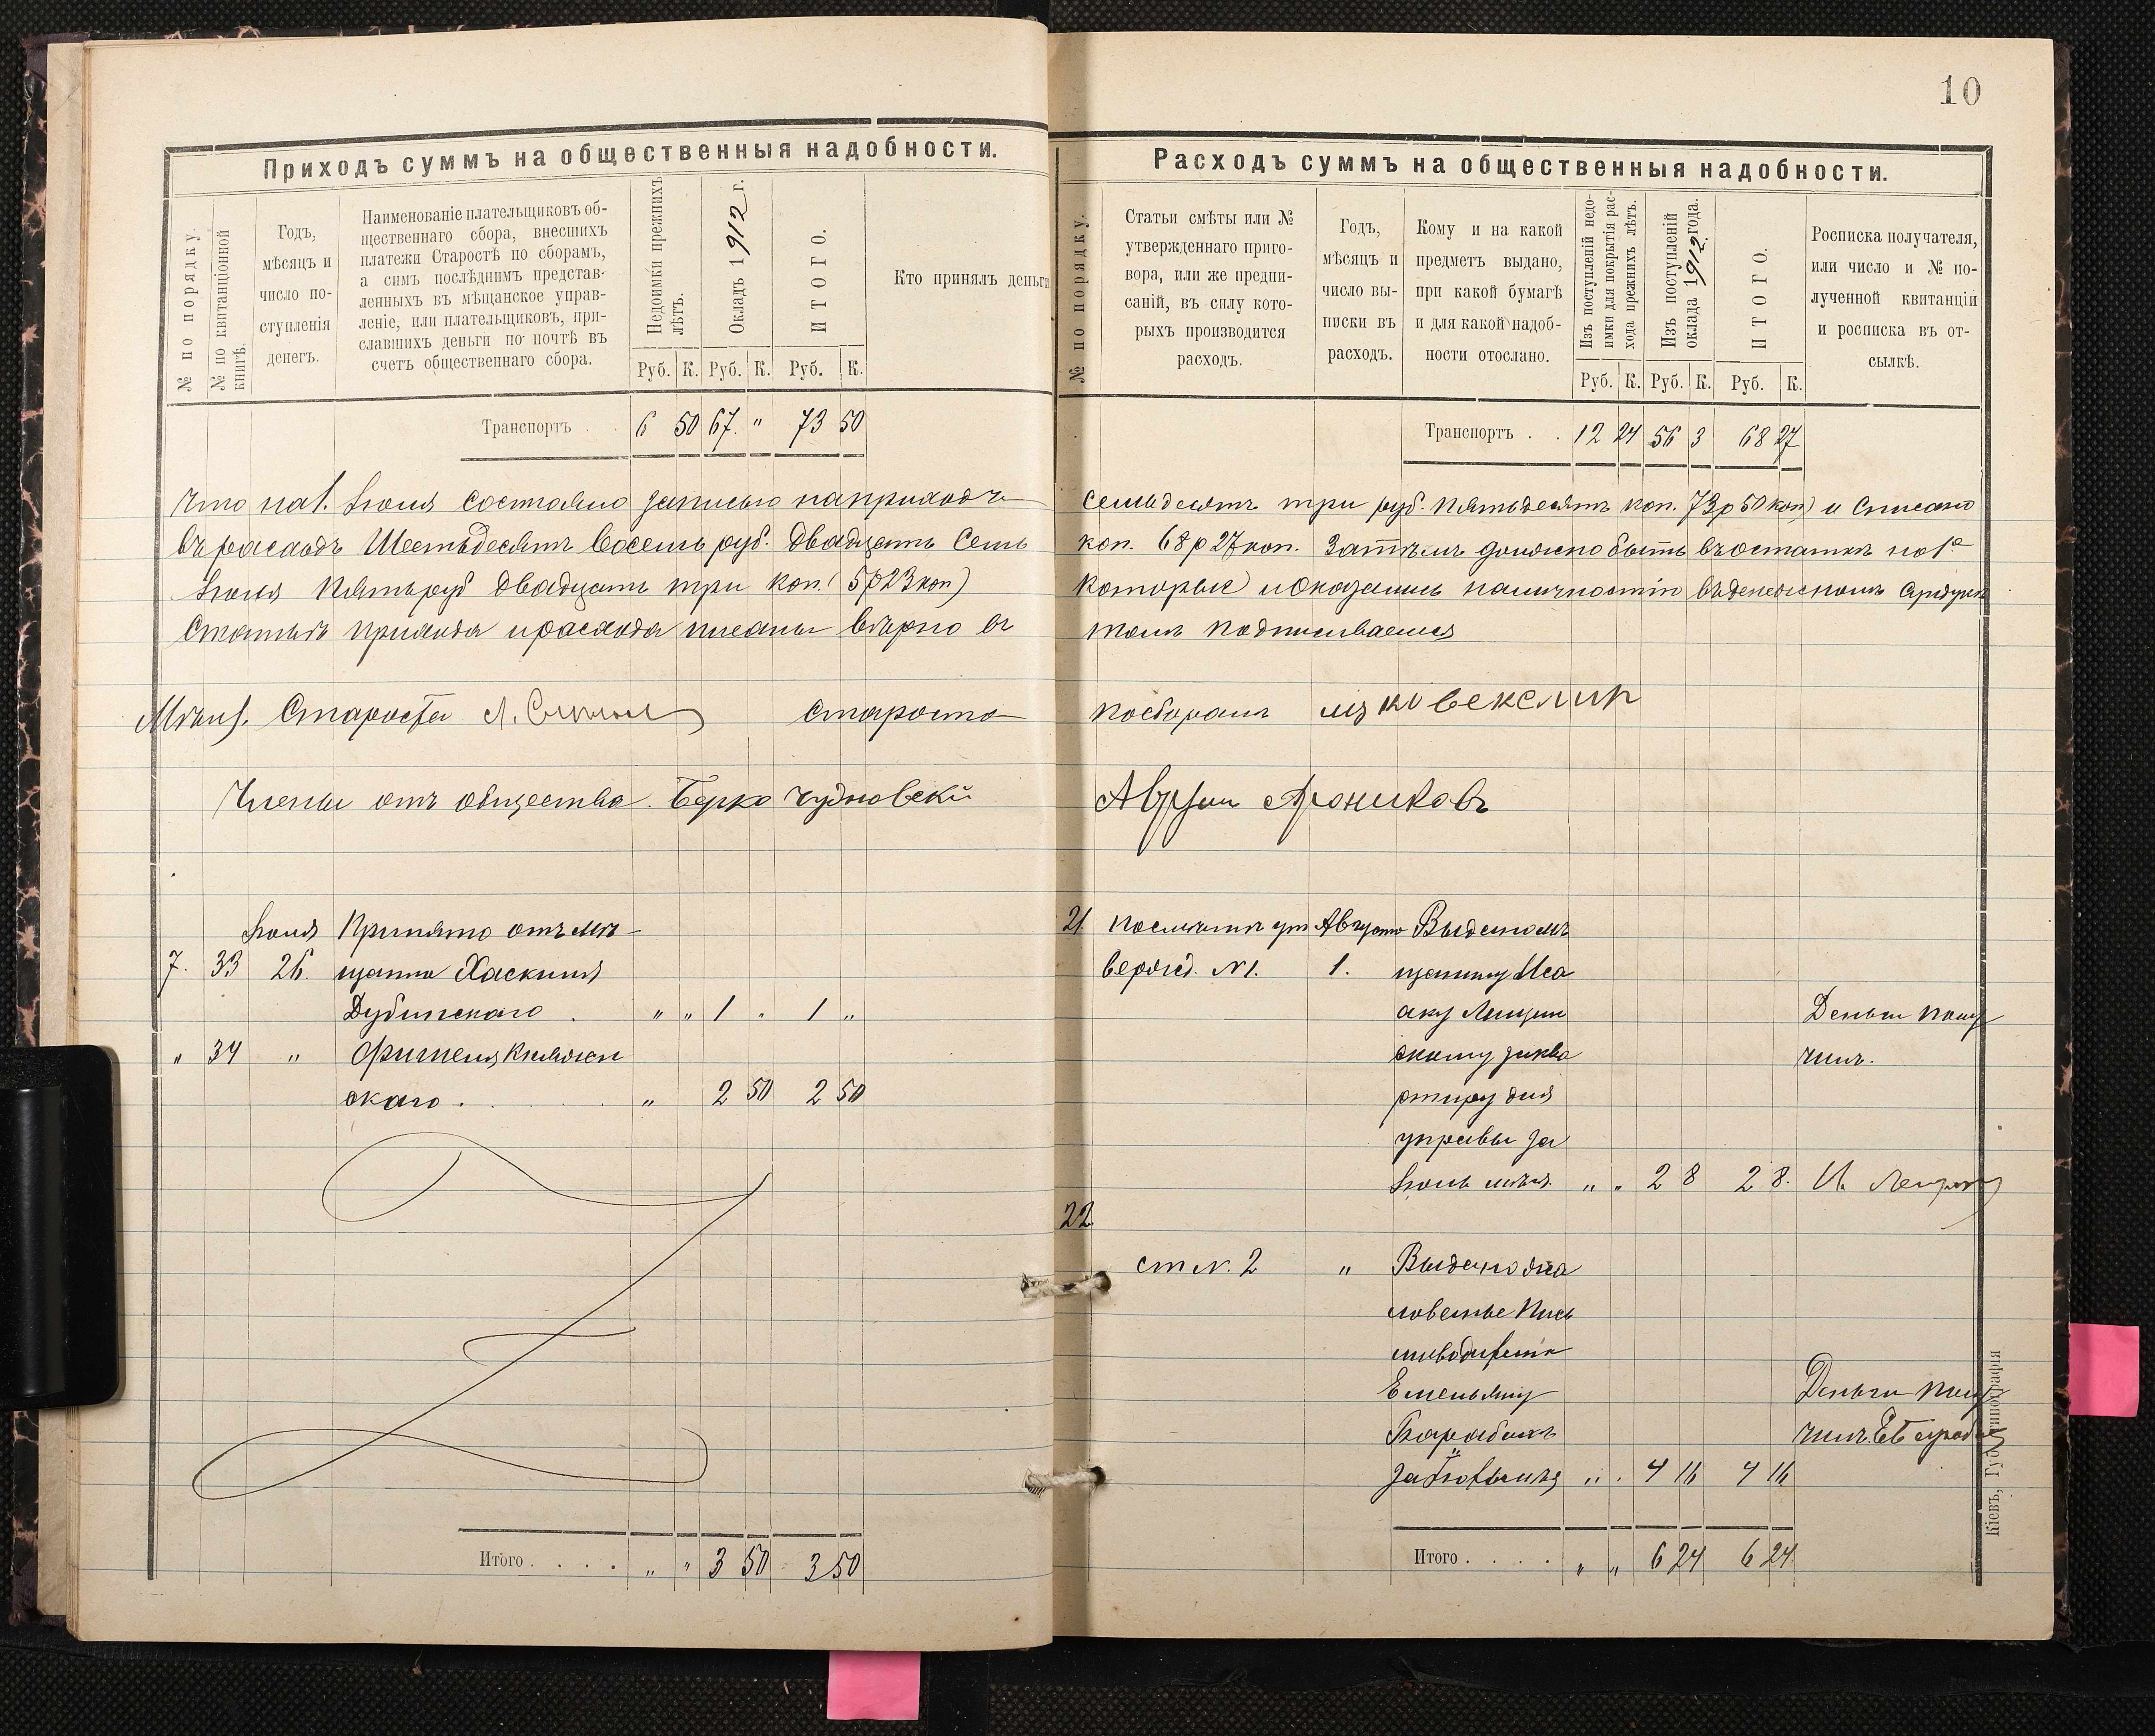 10
Приходъ суммъ на общественныя надобности.
№ по порядку.
№ по квитанціонной книгѣ.
Годъ,
мѣсяцъ и
число по-
ступленія
денегъ.
Наименованіе плательщиковъ об-
щественнаго сбора, внесшихъ
платежи Старостѣ по сборамъ,
а симъ послѣднимъ представ-
ленныхъ въ мѣщанское управ-
леніе, или плательщиковъ, при-
славшихъ деньги по почтѣ въ
счетъ общественнаго сбора.
Недоимки прежнихъ
лѣтъ.
Окладъ 1912 г.
ИТОГО.
Кто принялъ деньги
Руб. К. Руб. К. Руб. К.
Транспортъ . . 6 50 67. " 73 50
что на 1. Іюля состояло записью на приходъ
въ расходъ Шестьдесятъ восемь руб. двадцать семь
Іюля Пять руб двадцать три коп. (5р23коп)
Статьи прихода и расхода писаны вѣрно въ
Мѣщ. Староста Староста
Члены отъ общества. Берко Чудновскій
Іюля Принято отъ мѣ-
7. 33 26. щанина Хаскиля
Дубинскаго . " " 1 " 1 "
" 34 " Фишеля Княжен
скаго . " 2 50 2 50
Итого . . . . " " 3 50 3 50
Расходъ суммъ на общественныя надобности.
№ по порядку.
Статьи смѣты или №
утвержденнаго приго-
вора, или же предпи-
саній, въ силу кото-
рыхъ производится
расходъ.
Годъ,
мѣсяцъ и
число вы-
писки въ
расходъ.
Кому и на какой
предметъ выдано,
при какой бумагѣ
и для какой надоб-
ности отослано.
Изъ поступленій недо-
имки для покрытія рас-
хода прежнихъ лѣтъ.
Изъ поступленій
оклада 1912 года.
ИТОГО.
Росписка получателя,
или число и № по-
лученной квитанціи
и росписка въ от-
сылкѣ.
Руб. К. Руб. К. Руб. К.
Транспортъ . . 12 24 56 3 68 27
семьдесятъ три руб. пятьдесятъ коп. 73р 50 коп) и списано
коп. 68 р 27 коп. Затѣмъ должно быть въ остаткѣ на 1е
которые и оказались наличностію въ денежномъ сундукѣ
томъ подписываемся
по сборамъ
Аврум Ароников
21 По смѣтѣ ут Августа Выдано мѣ
вержд. №1. 1. щанину Иса
аку Лещин Деньги полу
скому за ква чилъ.
ртиру для
управы за
Іюль мѣсяцъ " " 2 8 2 8.
22.
ст №. 2 " Выдано жа
лованье Пись
моводителю
Емельяну Деньги полу
чилъ
" . 4 16 4 16
Итого . . . . " " 6 24 6 24
Кіевъ, Губ. типографія